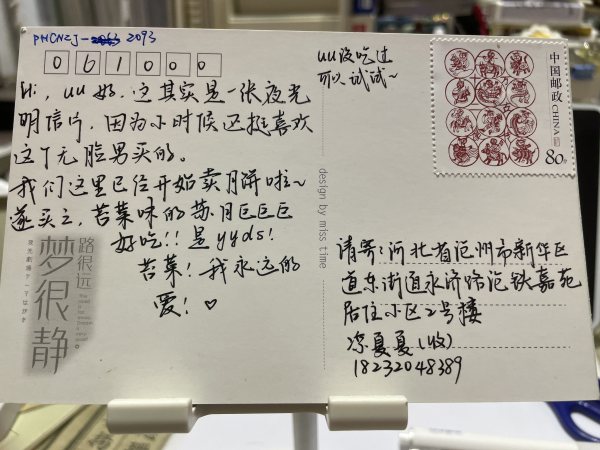 PHCNZJ-2093
061000
Hi, uu好. 这其实是一张夜光
明信片, 因为小时候还挺喜欢
这个无脸男买的。
我们这里已经开始卖月饼啦~
遂买之, 苔菜味的苏月巨巨巨
好吃!! 是yyds!
苔菜! 我永远的
爱! ♡
uu没吃过
可以试试~
中国邮政 CHINA
80分
design by miss time
路很远
梦很静。
请寄: 河北省沧州市新华区
道东街道永济路沧铁嘉苑
居住小区2号楼
凉夏夏(收)
18232048389